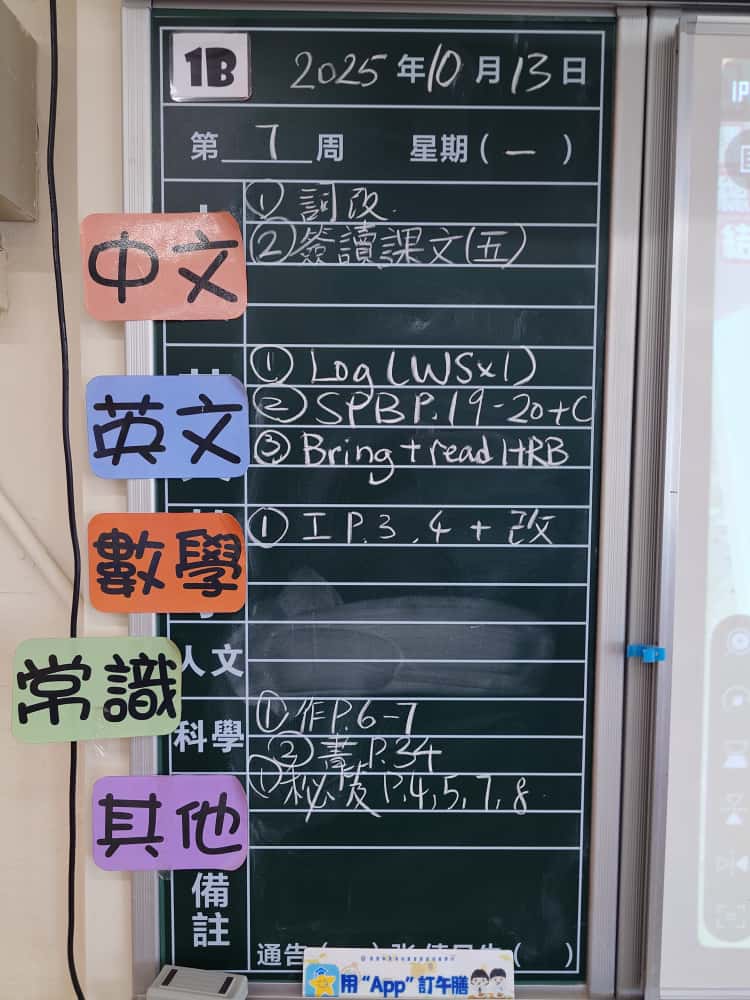 1B 2025年10月13日
第7周 星期(一)
中文
① 詞改
② 簽讀課文(五)
英文
① Log (WSx1)
② SPB P.19-20+C
③ Bring + read HRB
數學
① 工 P.3, 4 + 改
人文
常識
科學
① 作P.6-7
② 書 P.34
其他
① 秘笈 P.4,5,7,8
備註
通告( )
用“App”訂午膳
IP